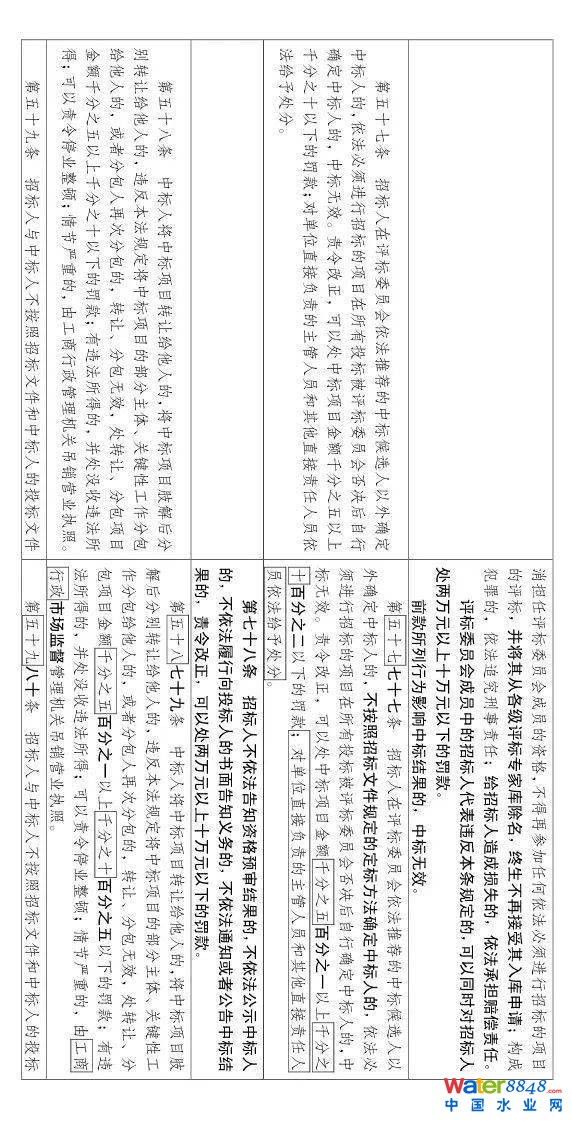 消担任评标委员会成员的资格，不得再参加任何依法必须进行招标的项目
的评标，并将其从各级评标专家库除名，终生不再接受其入库申请；构成
犯罪的，依法追究刑事责任；给招标人造成损失的，依法承担赔偿责任。
评标委员会成员中的招标人代表违反本条规定的，可以同时对招标人
处两万元以上十万元以下的罚款。
前款所列行为影响中标结果的，中标无效。
第五十七条　招标人在评标委员会依法推荐的中标候选人以外确定
中标人的，依法必须进行招标的项目在所有投标被评标委员会否决后自行
确定中标人的，中标无效。责令改正，可以处中标项目金额千分之五以上
千分之十以下的罚款；对单位直接负责的主管人员和其他直接责任人员依
法给予处分。
第五十七七十七条　招标人在评标委员会依法推荐的中标候选人以
外确定中标人的，不按照招标文件规定的定标方法确定中标人的，依法必
须进行招标的项目在所有投标被评标委员会否决后自行确定中标人的，中
标无效。责令改正，可以处中标项目金额千分之五百分之一以上千分之
十百分之二以下的罚款；对单位直接负责的主管人员和其他直接责任人
员依法给予处分。
第七十八条　招标人不依法告知资格预审结果的，不依法公示中标人
的，不依法履行向投标人的书面告知义务的，不依法通知或者公告中标结
果的，责令改正，可以处两万元以上十万元以下的罚款。
第五十八条　中标人将中标项目转让给他人的，将中标项目肢解后分
别转让给他人的，违反本法规定将中标项目的部分主体、关键性工作分包
给他人的，或者分包人再次分包的，转让、分包无效，处转让、分包项目
金额千分之五以上千分之十以下的罚款；有违法所得的，并处没收违法所
得；可以责令停业整顿；情节严重的，由工商行政管理机关吊销营业执照。
第五十八七十九条　中标人将中标项目转让给他人的，将中标项目肢
解后分别转让给他人的，违反本法规定将中标项目的部分主体、关键性工
作分包给他人的，或者分包人再次分包的，转让、分包无效，处转让、分
包项目金额千分之五百分之一以上千分之十百分之五以下的罚款；有违
法所得的，并处没收违法所得；可以责令停业整顿；情节严重的，由工商
行政市场监督管理机关吊销营业执照。
第五十九条　招标人与中标人不按照招标文件和中标人的投标文件
第五十九八十条　招标人与中标人不按照招标文件和中标人的投标
Water8848.com
中国水业网